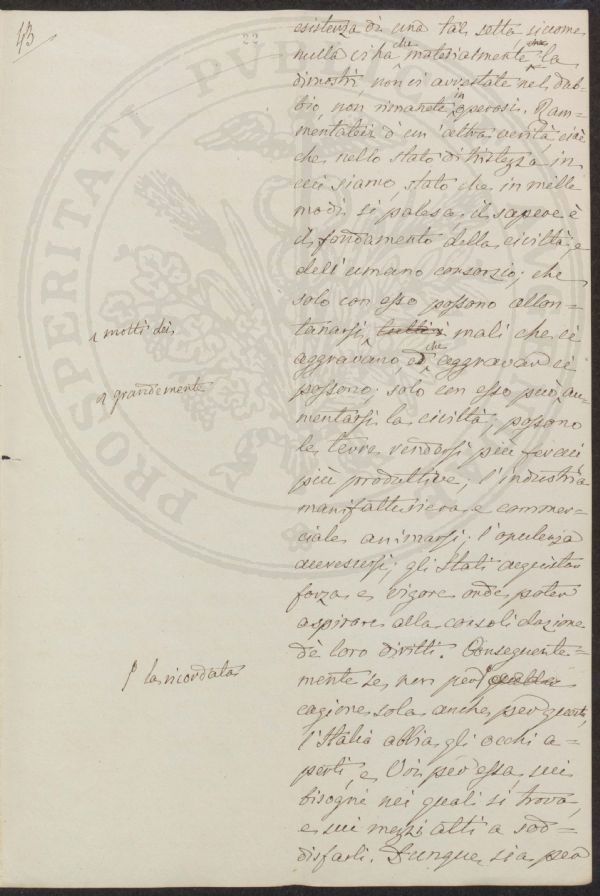 43
22
esistenza di una tal setta, siccome
nulla ci ha che materialmente la
dimostri, non vi arrestate nel dub=
bio, non rimanete inoperosi. Ram=
mentatevi d'un'altra verità, cioè
che nello stato di tristezza in
cui siamo, stato che in mille
modi si palesa, il sapere è
il fondamento della civiltà, e
dell'umano consorzio; che
solo con esso possono allon=
tanarsi tutti i mali che ci
aggravano, o che aggravar ci
possono; solo con esso può au=
mentarsi la civiltà, possono
le terre rendersi più feraci
più produttive; l'industria
manifatturiera e commer=
ciale animarsi; l'opulenza
accrescersi; gli Stati acquistar
forza e vigore onde poter
aspirare alla consolidazione
de' loro diritti. Conseguente=
mente se non per quella
cagione sola anche per questa,
l'Italia abbia gli occhi a=
perti, e Voi per essa, sui
bisogni nei quali si trova,
e sui mezzi atti a sod=
disfarli. Dunque sia per
a molti dei
a grandemente
la ricordata
PROSPERITATI PUBLICAE